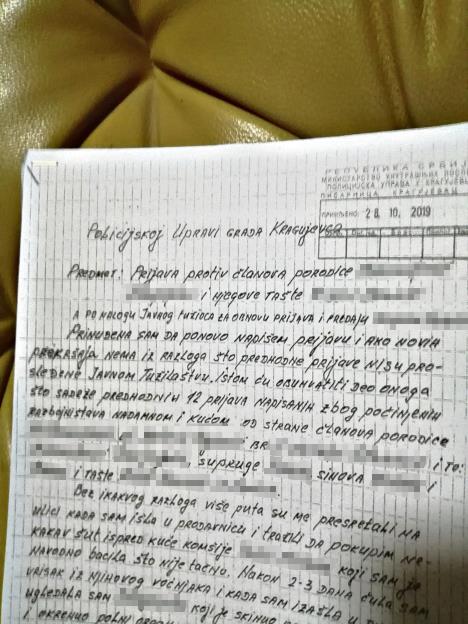 РЕПУБЛИКА СРБИЈА
МИНИСТАРСТВО УНУТРАШЊИХ ПОСЛОВА
ПОЛИЦИЈСКА УПРАВА У КРАГУЈЕВЦУ
ПИСАРНИЦА КРАГУЈЕВАЦ
ПРИМЉЕНО: 28. 10. 2019
Policijskoj Upravi grada Kragujevca
Predmet: Prijava protiv članova porodice
i njegove tašte
a po nalogu Javnog tužioca za osnovu prijava i predaju
Prinuđena sam da ponovo napišem prijavu i ako novih
prekršaja nema iz razloga što predhodne prijave nisu pro-
sleđene Javnom Tužilaštvu. Istom ću obuhvatiti deo onoga
što sadrže predhodnih 12 prijava napisanih zbog počinjenih
razbojništava nadamnom i kućom od strane članova porodice
br i to:
supruge sinova i
i tašte
Bez ikakvog razloga više puta su me presretali na
ulici kada sam išla u prodavnicu i tražili da pokupim ne-
kakav šut ispred kuće komšije koji sam ja
navodno bacila što nije tačno. Nakon 2-3 dana čula sam
vrisak iz njihovog voćnjaka i kada sam izašla u
ugledala sam koji je skinuo
i okrenuo polni